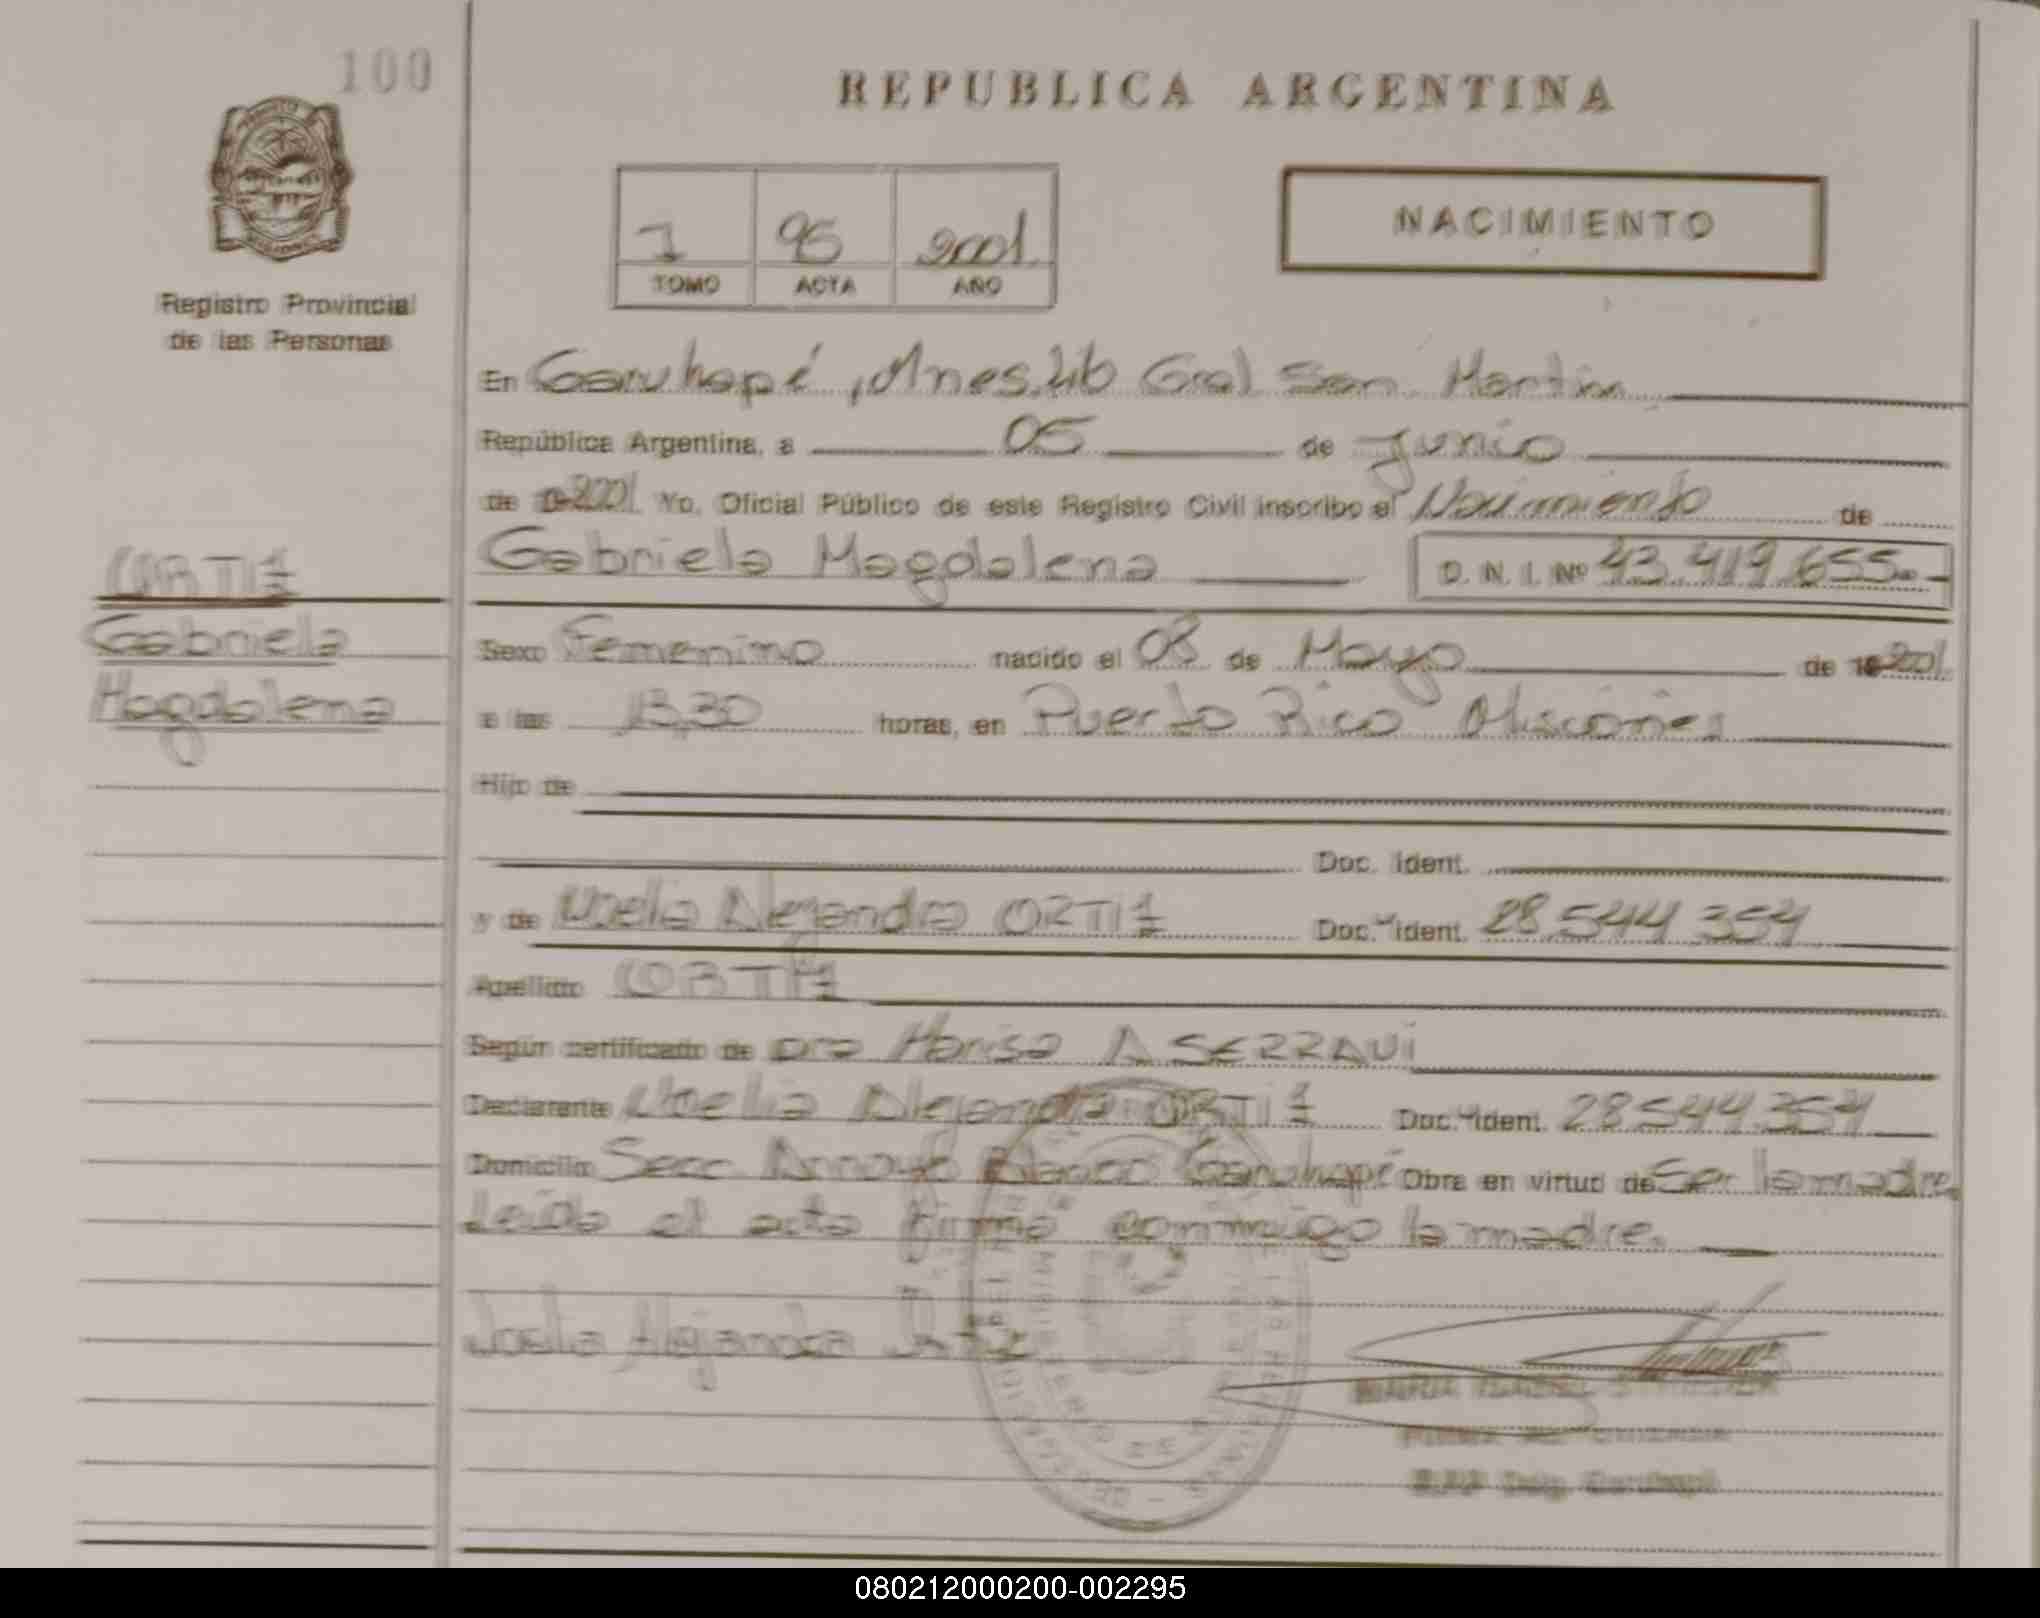 100
REPUBLICA ARGENTINA
NACIMIENTO
I 95 2001
TOMO ACTA AÑO
Registro Provincial
de las Personas
En Garuhapé, Mnes. Lib Gral San Martin
República Argentina, a 05 de Junio
de 2001 Yo, Oficial Público de este Registro Civil inscribo el Nacimiento de
Gabriela Magdalena D. N. I. Nº 43.419.655.-
ORTIZ
Gabriela
Magdalena
Sexo Femenino nacido el 08 de Mayo de 2001
a las 13,30 horas, en Puerto Rico Misiones
Hijo de
Doc. Ident.
y de Noelia Alejandra ORTIZ Doc. Ident. 28.544 354
Apellido ORTIZ
Según certificado de Dra Marisa ASERRAUI
Declarante Noelia Alejandra ORTIZ Doc. Ident. 28544.354
Domicilio Secc Arroyo Blanco Garuhapé Obra en virtud de Ser la madre
Leida el acta firma conmigo la madre.
Noelia Alejandra Ortiz
080212000200-002295